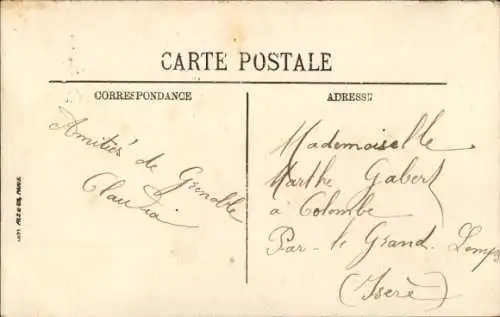 CARTE POSTALE
CORRESPONDANCE
ADRESSE
Amitiés de Grenoble
Claudia
Mademoiselle
Marthe Gabert
à Colombe
Par - le Grand - Lemps
(Isère)